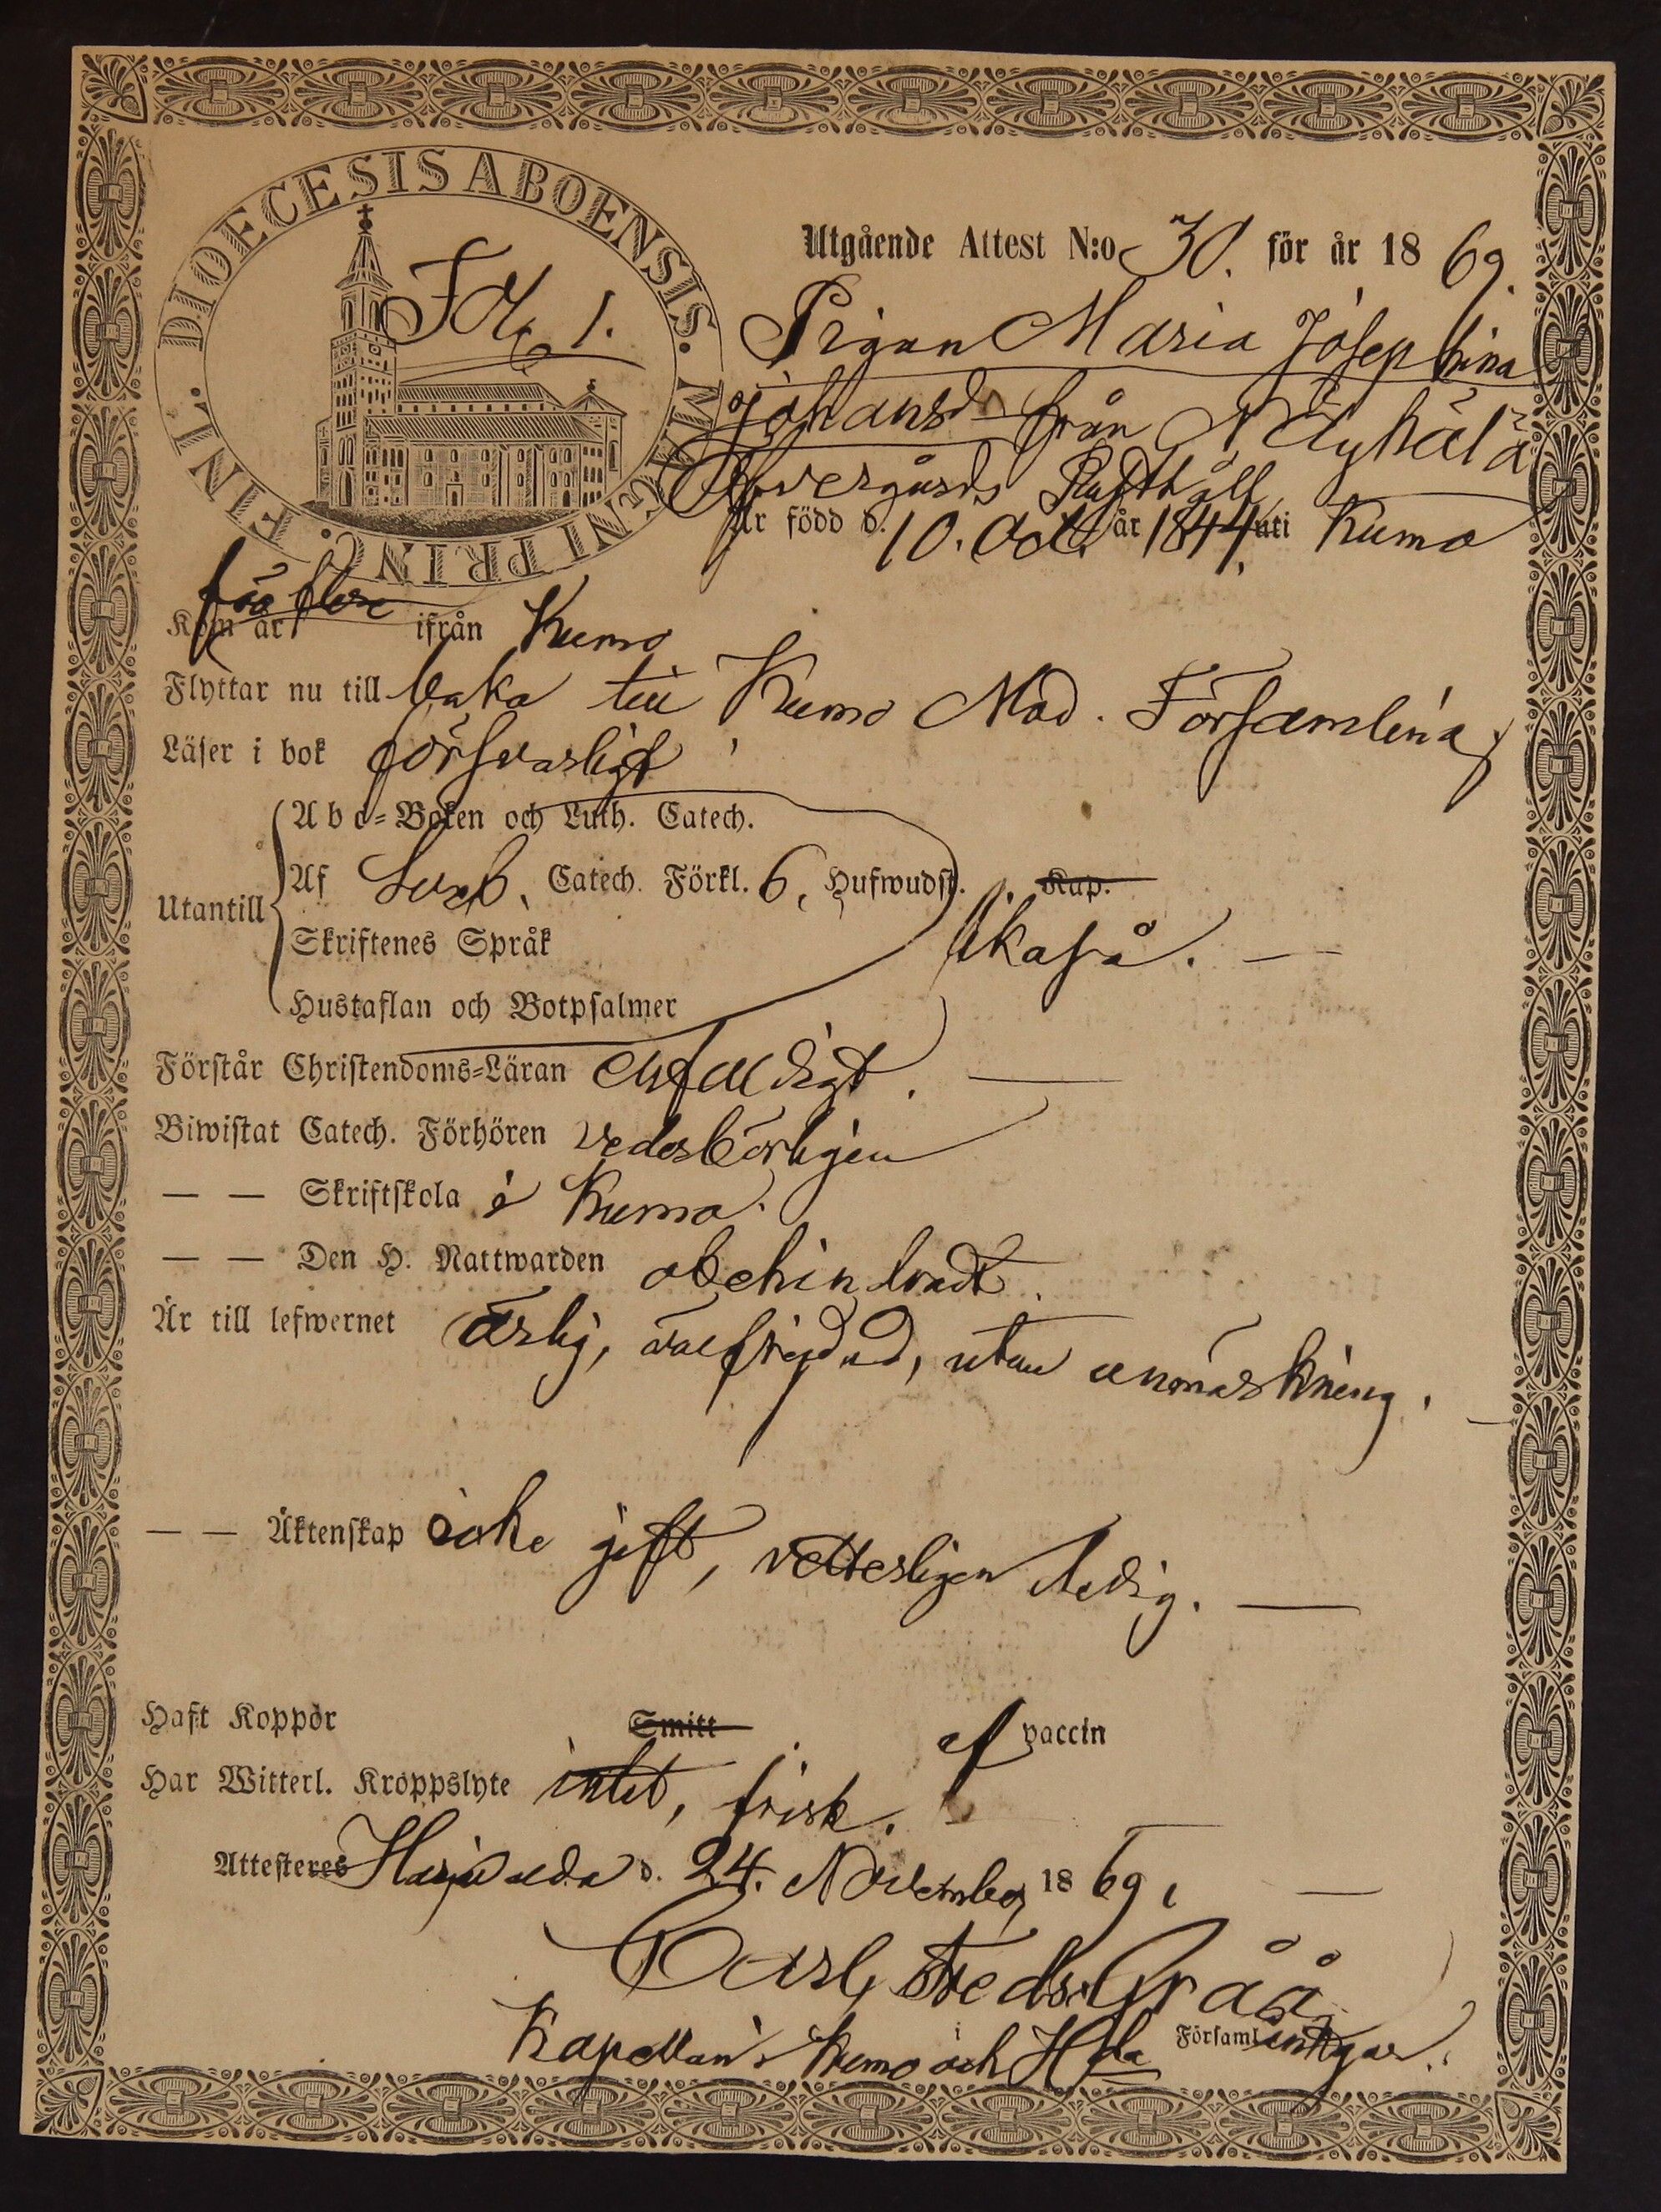 DIOECESIS ABOENSIS. M. PRINC. FINL.
1.
Utgående Attest N:o 30. för år 1869.
Pigan Maria Josephina
Johansdr från Näyhälä
Öfvergårds Rusthåll
Är född d. 10. Oct. år 1844, uti Kumo
Kom år ifrån Kumo
Flyttar nu till baka till Kumo Mod. Församling
Läser i bok försvarligt
A b c-Boken och Luth. Catech.
Af Sveb. Catech. Förkl. 6, Hufwudst. Kap.
Utantill
Skriftenes Språk likaså.
Hustaflan och Botpsalmer
Förstår Christendoms-Läran enfaldigt.
Biwistat Catech. Förhören vederbörligen
— — Skriftskola i Kumo.
— — Den H. Nattwarden obehindradt.
Är till lefwernet ärlig, välfrejdad, utan anmärkning.
— — Äktenskap icke gift, vetterligen ledig.
Haft Koppor Smitt af vaccin
Har Witterl. Kroppslyte intet, frisk.
Attesteres Harjavalda d. 24. November 1869.
Carl Fredr. Gråå
Kapellan i Kumo och H:la Församlingar.